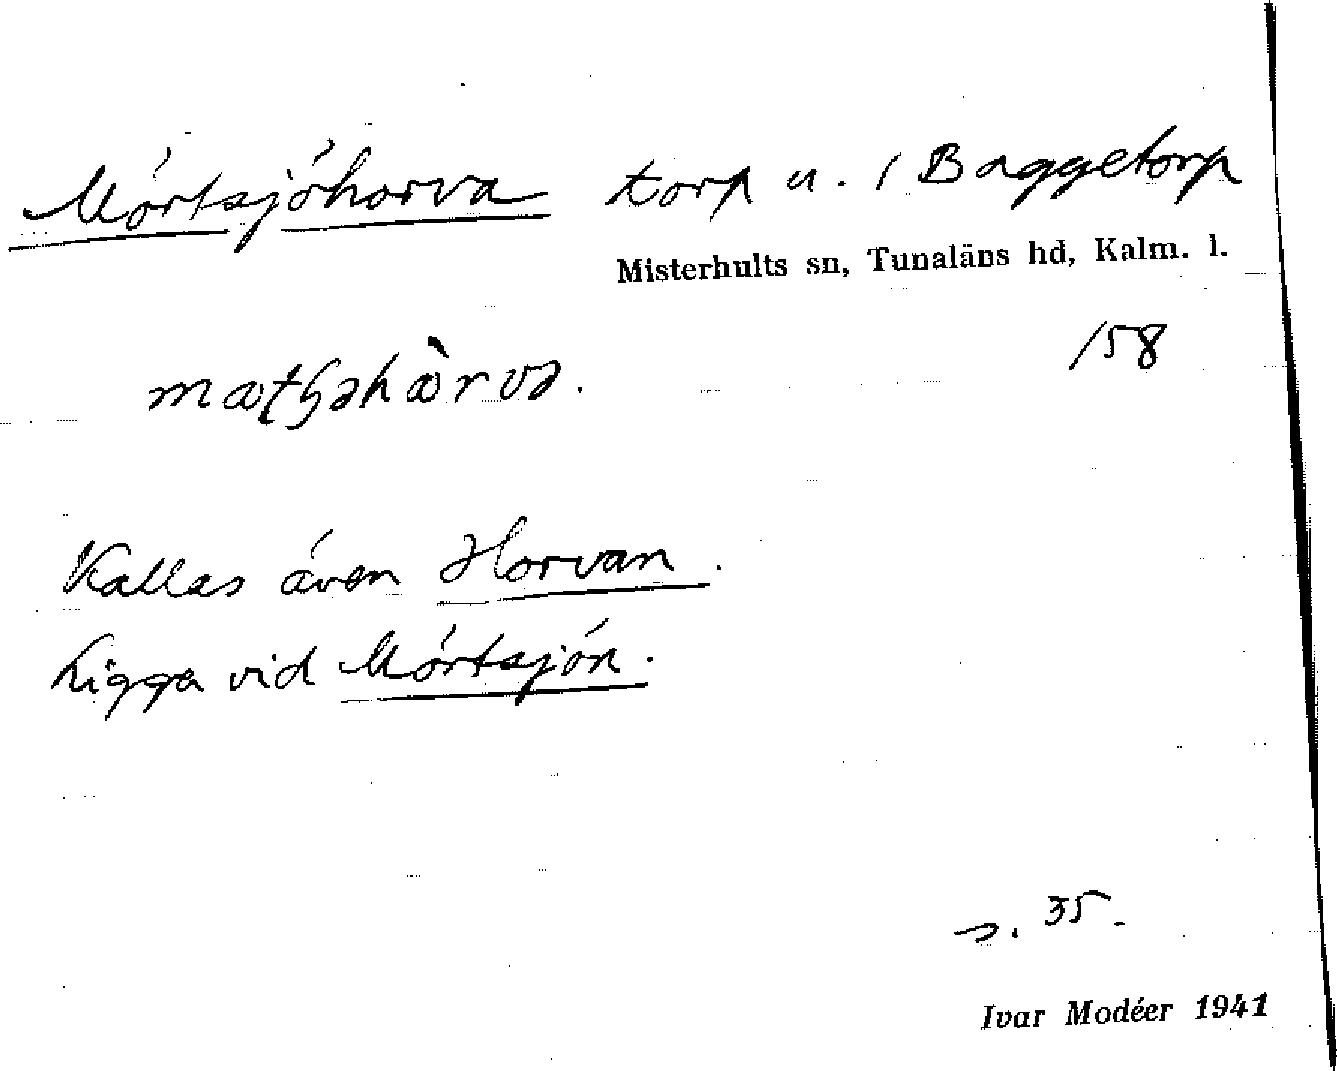 Mörtsjöhorva torp u. 1 Baggetorp
Misterhults sn, Tunaläns hd, Kalm. l.
158
Kallas även Horvan.
Ligga vid Mörtsjön.
s. 35.
Ivar Modéer 1941